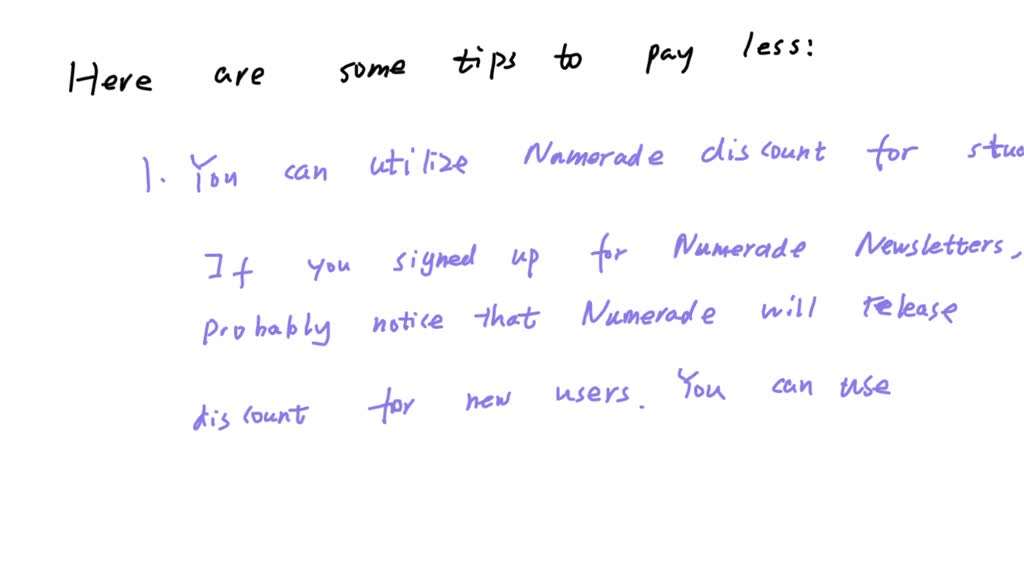 Here are some tips to pay less:
1. You can utilize Numerade discount for stud
If you signed up for Numerade Newsletters,
probably notice that Numerade will release
discount for new users. You can use